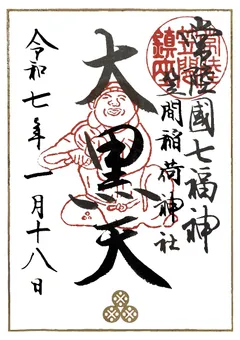 常陸國七福神
笠間稲荷神社
大黒天
令和七年一月十八日